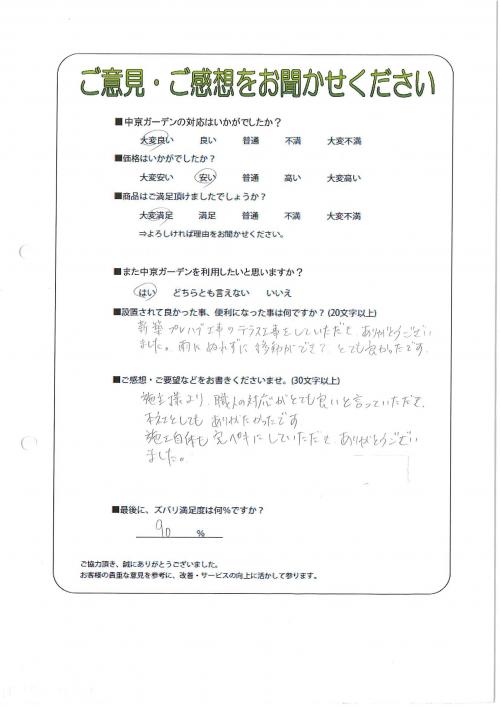 ご意見・ご感想をお聞かせください
■中京ガーデンの対応はいかがでしたか？
大変良い 良い 普通 不満 大変不満
■価格はいかがでしたか？
大変安い 安い 普通 高い 大変高い
■商品はご満足頂けましたでしょうか？
大変満足 満足 普通 不満 大変不満
⇒よろしければ理由をお聞かせください。
■また中京ガーデンを利用したいと思いますか？
はい どちらとも言えない いいえ
■設置されて良かった事、便利になった事は何ですか？(20文字以上)
新築プレハブ工事のテラス工事をしていただいて ありがとうござい
ました。雨にぬれずに移動ができて、とても良かったです。
■ご感想・ご要望などをお書きくださいませ。(30文字以上)
施主様より、職人の対応がとても良いと言っていただいて、
としても ありがたかったです
施工自体も完ペキにしていただいて ありがとうござい
ました。
■最後に、ズバリ満足度は何%ですか？
90 %
ご協力頂き、誠にありがとうございました。
お客様の貴重な意見を参考に、改善・サービスの向上に活かして参ります。